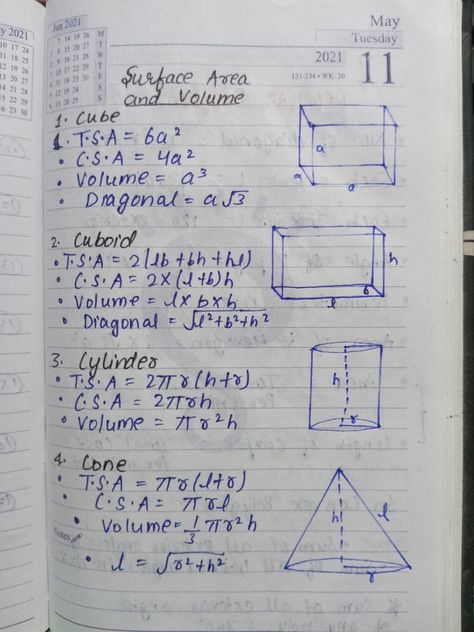 May
Tuesday
2021
131-234 • WK 20
11
Jun 2021
Surface Area
and Volume
1. Cube
1. T.S.A = 6a²
• C.S.A = 4a²
• Volume = a³
• Diagonal = a√3
a
a
a
2. Cuboid
• T.S.A = 2(lb + bh + hl)
• C.S.A = 2×(l+b)h
• Volume = l×b×h
• Diagonal = √l²+b²+h²
h
b
l
3. Cylinder
• T.S.A = 2πr(h+r)
• C.S.A = 2πrh
• Volume = πr²h
h
r
4. Cone
• T.S.A = πr(l+r)
• C.S.A = πrl
• Volume = 1/3 πr²h
Notes
• l = √r²+h²
h
l
r